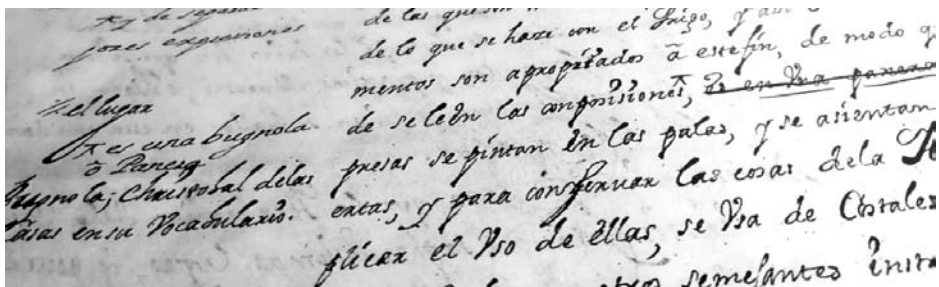 y de separa
jores expreciones
el lugar
es una bugnola
ò Panera
Bugnola; Christobal delas
Casas en su Vocabulario.
de las que son
de lo que se haze con el Trigo, y asi
mentos son apropriados â este fin, de modo q
de se leên las composisiones, en Vna panera
presas se pintan en las palas, y se asientan
ertas, y para conservar las cosas dela
plicar el Vso de êllas, se Vsa de Costales
semejantes inst